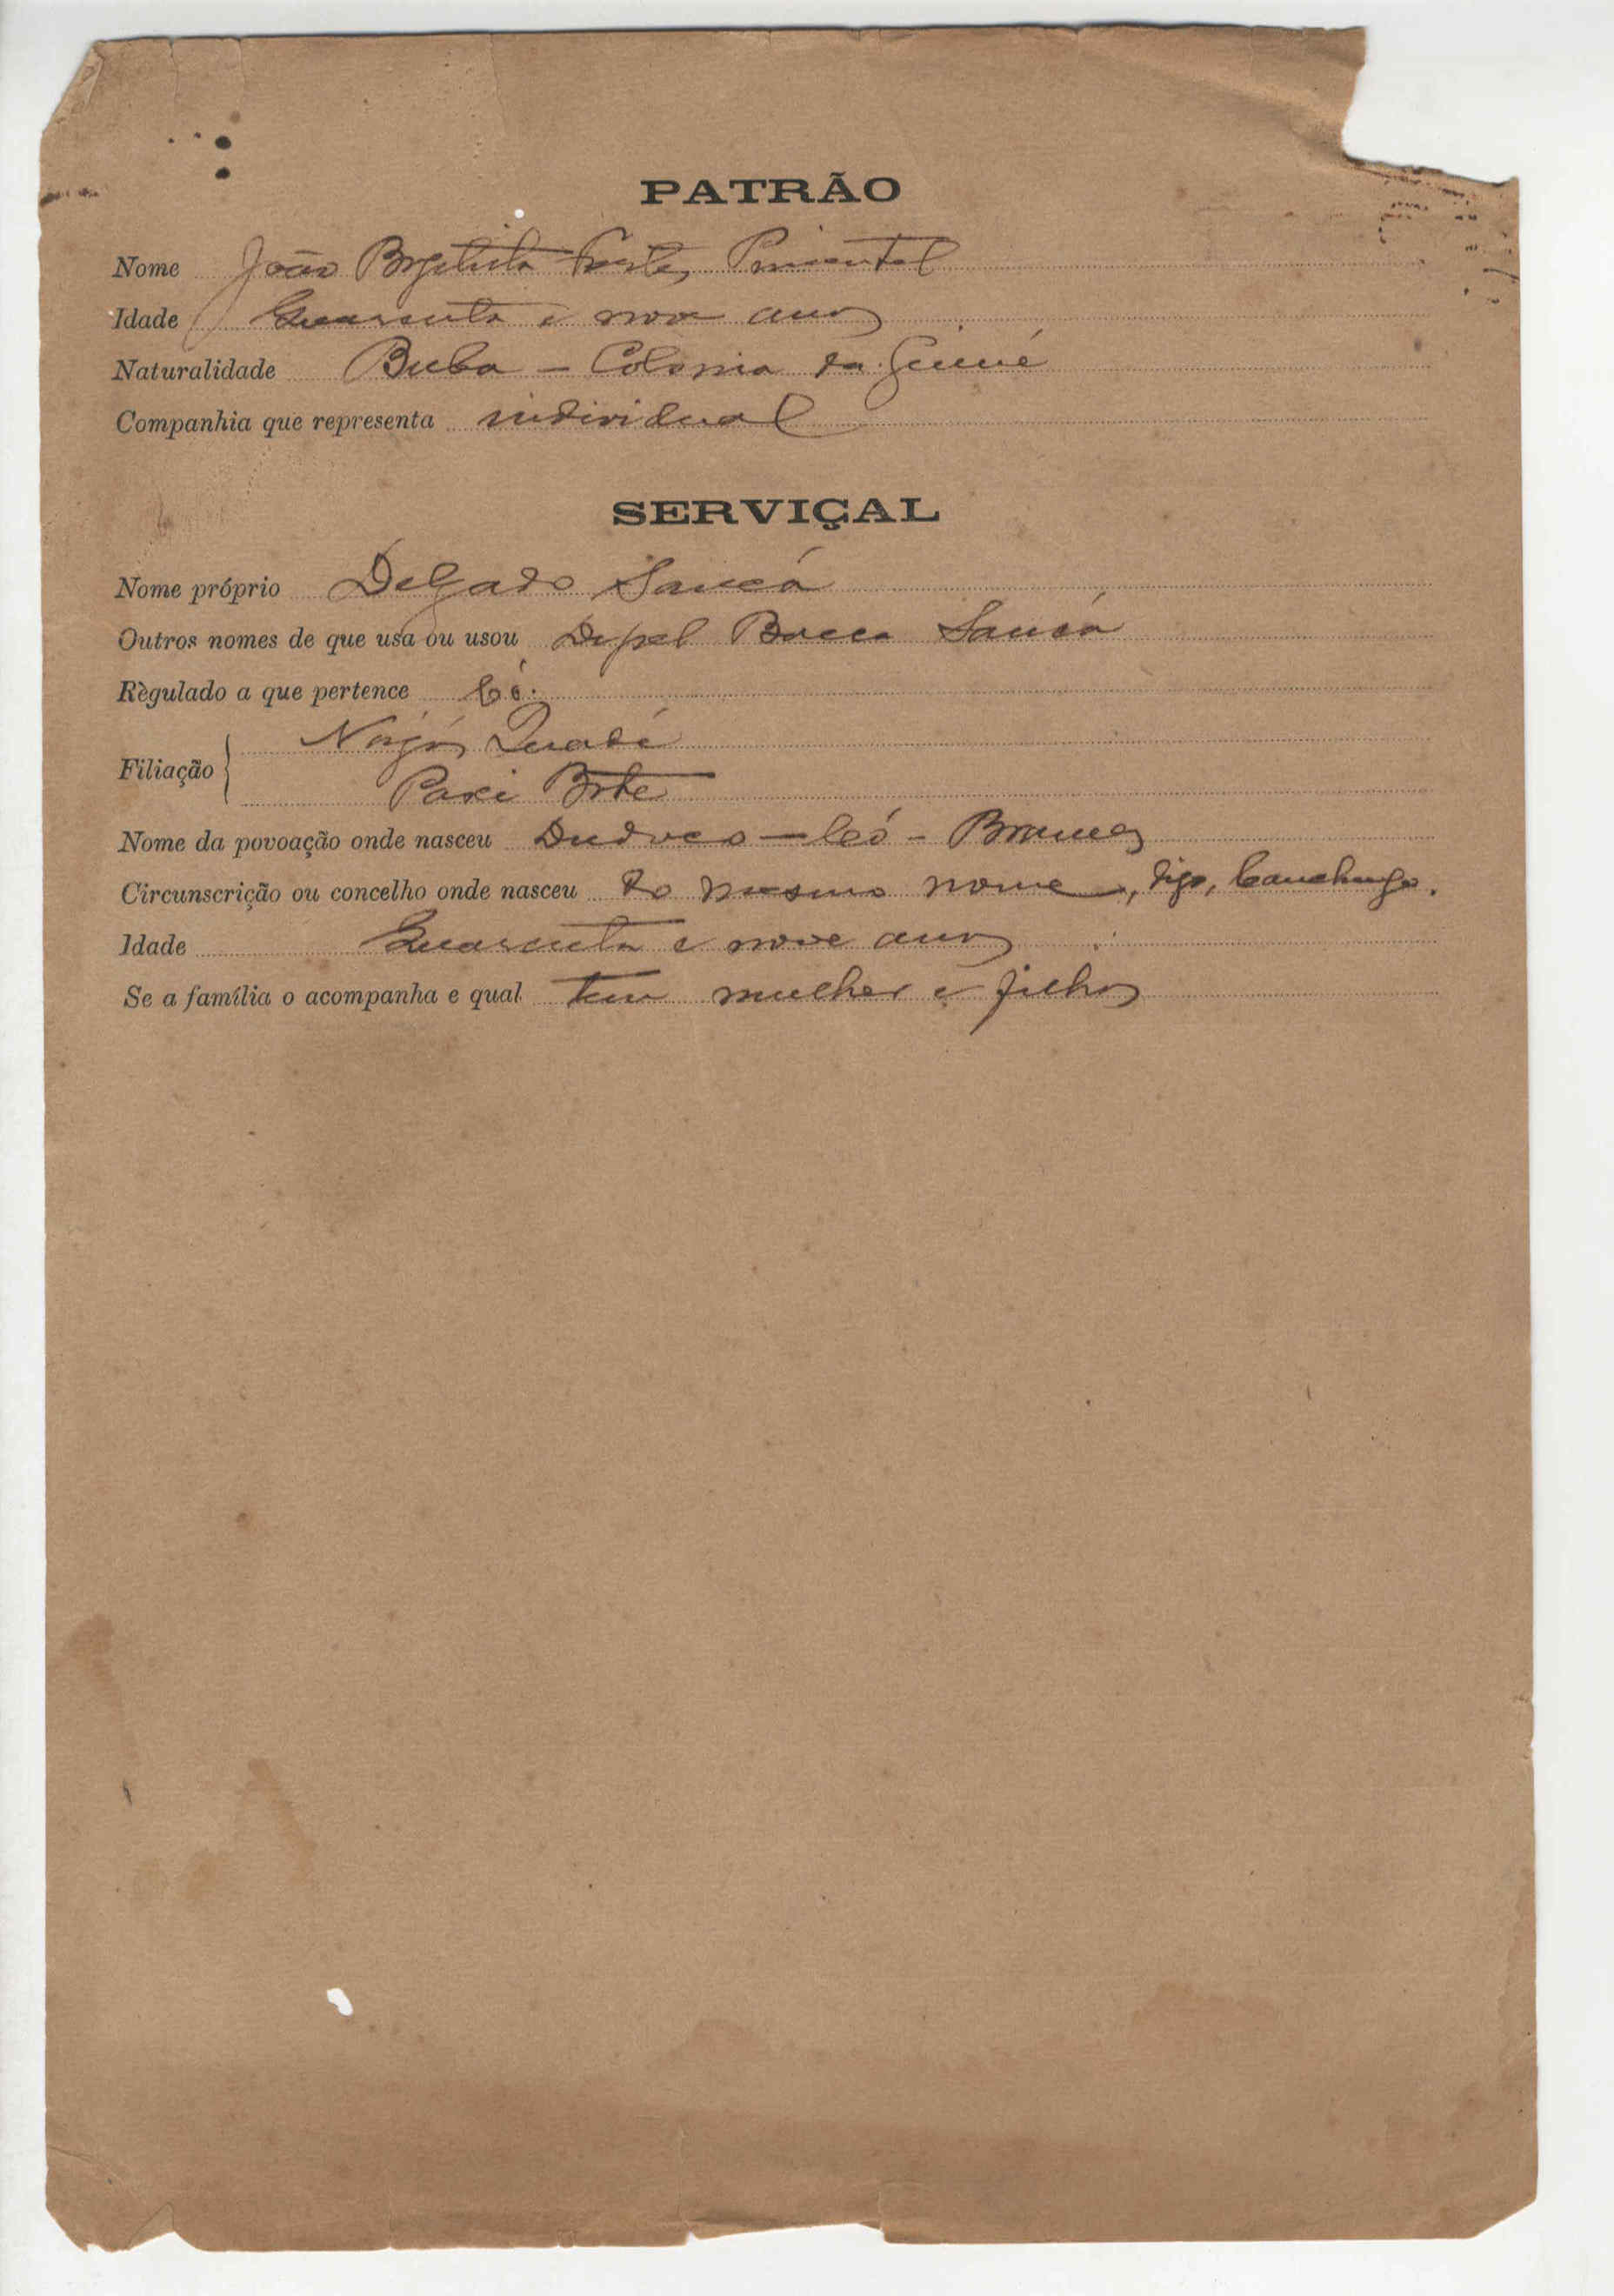 PATRÃO
Nome João Baptista Pimentel
Idade Quarenta e nove anos
Naturalidade Buba — Colonia da Guiné
Companhia que representa individual
SERVIÇAL
Nome próprio Delgado Sancá
Outros nomes de que usa ou usou Sancá
Règulado a que pertence Có.
Filiação
Nome da povoação onde nasceu Có - Brames
Circunscrição ou concelho onde nasceu do mesmo nome, digo, Canchungo.
Idade Quarenta e nove anos
Se a família o acompanha e qual tem mulher e filhos